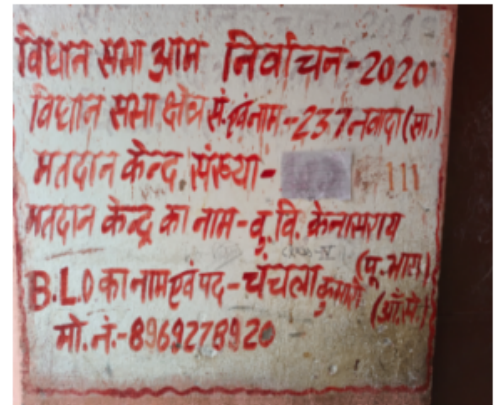 विधान सभा आम निर्वाचन-2020
विधान सभा क्षेत्र सं. एवं नाम-237 नवादा (सा.)
मतदान केन्द्र संख्या- 111
मतदान केन्द्र का नाम-बु. वि. केनासराय (पू. भाग)
B.L.O का नाम एवं पद-चंचला कुमारी (आँ. से.)
मो. नं.-8969278920